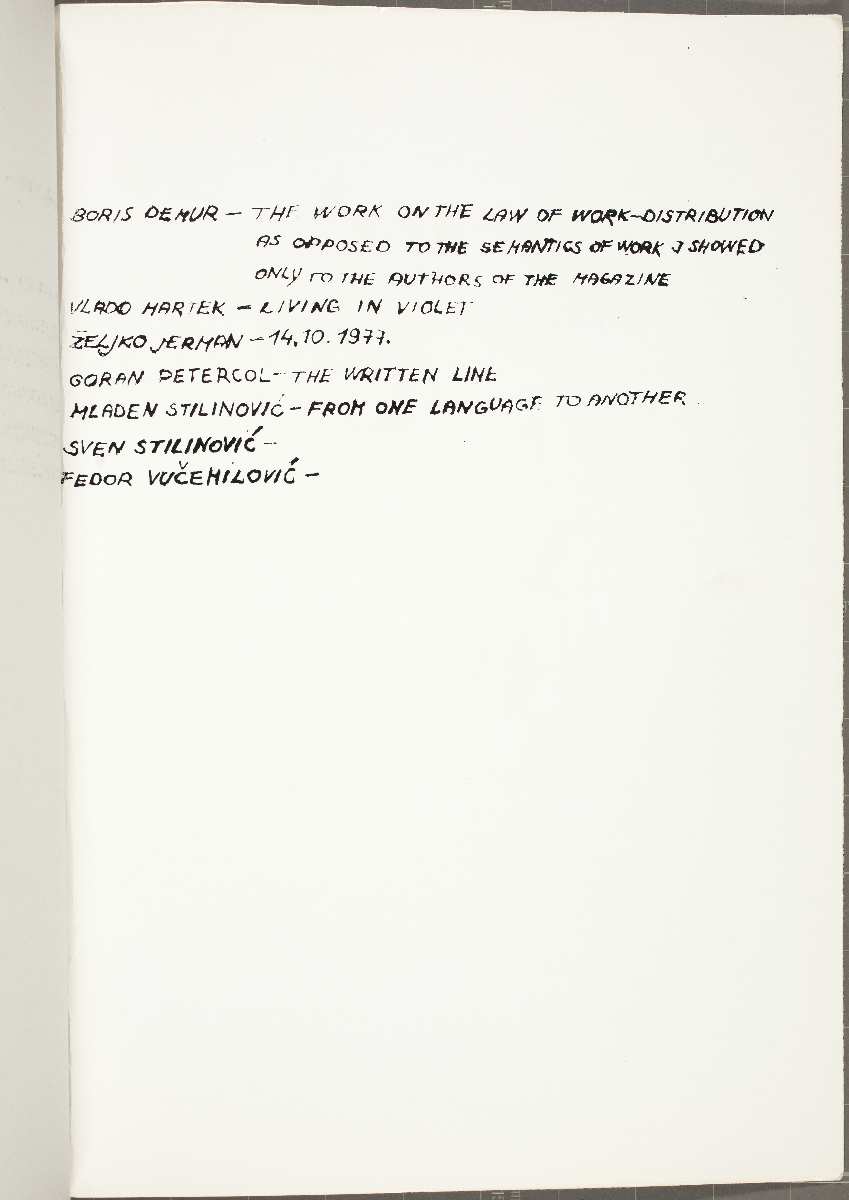 BORIS DEMUR – THE WORK ON THE LAW OF WORK–DISTRIBUTION
AS OPPOSED TO THE SEMANTICS OF WORK I SHOWED
ONLY TO THE AUTHORS OF THE MAGAZINE
VLADO MARTEK – LIVING IN VIOLET
ŽELJKO JERMAN – 14.10.1977.
GORAN PETERCOL – THE WRITTEN LINE
MLADEN STILINOVIĆ – FROM ONE LANGUAGE TO ANOTHER
SVEN STILINOVIĆ –
FEDOR VUČEMILOVIĆ –